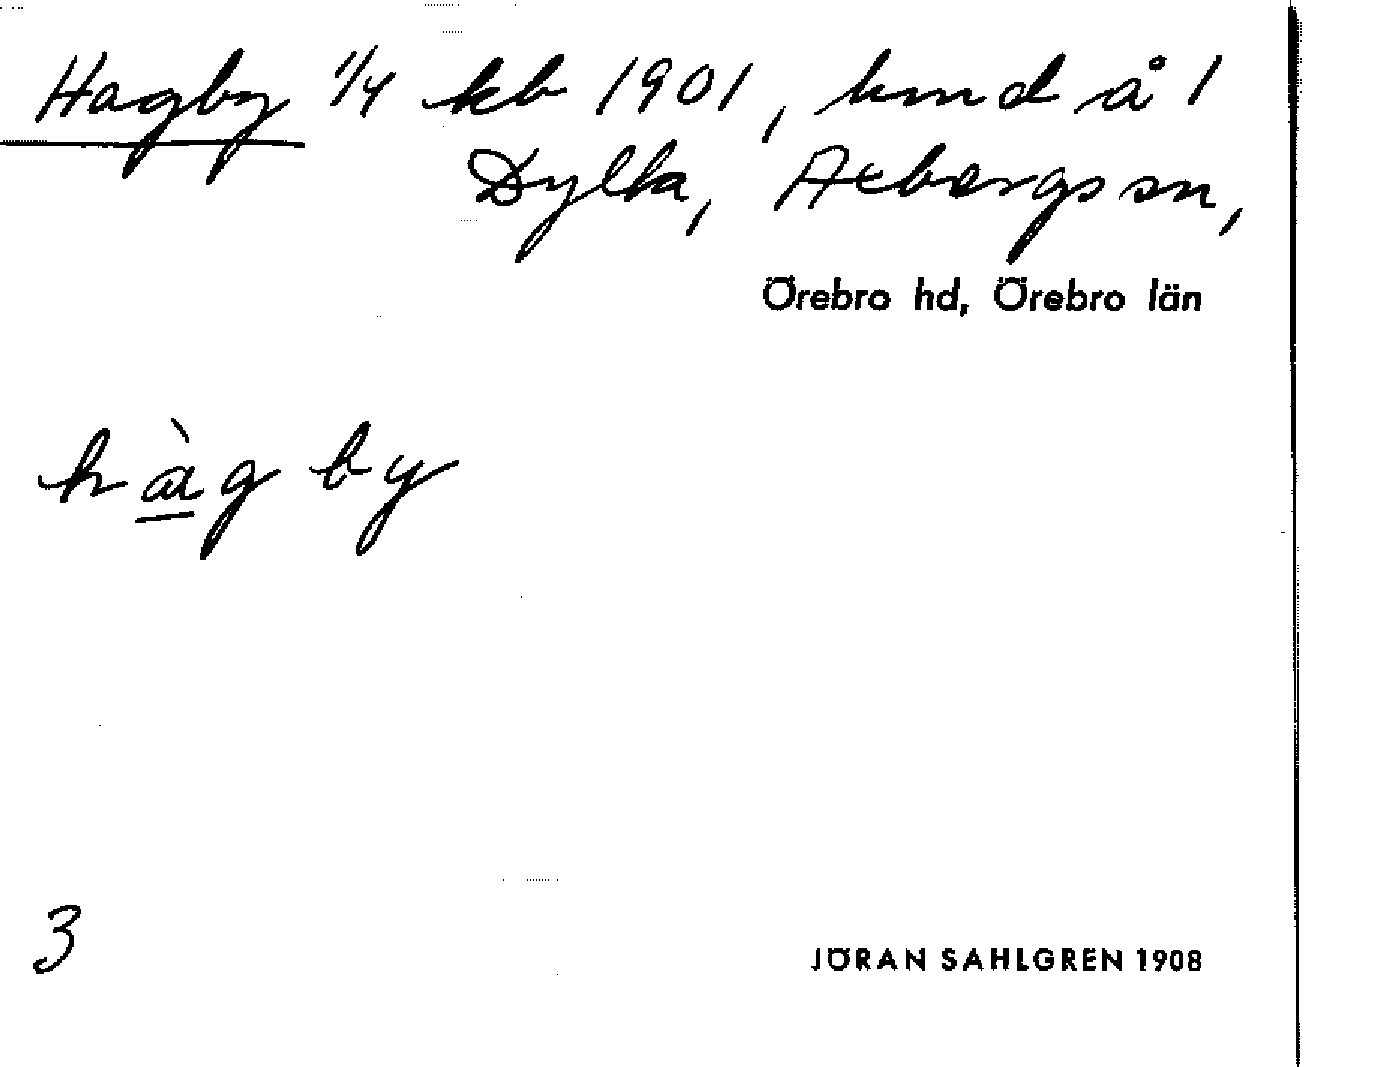 Hagby 1/4 kb 1901, lund å 1
Dylta, Axbergs sn,
Örebro hd, Örebro län
hàg by
3
JÖRAN SAHLGREN 1908